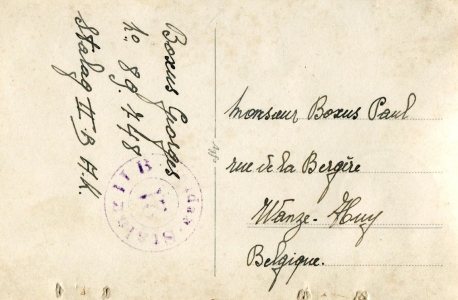 Boxus Georges
No 89.748
Stalag II B A.K.
Monsieur Boxus Paul
rue de la Bergère
Wanze-Huy
Belgique.
Stalag II B